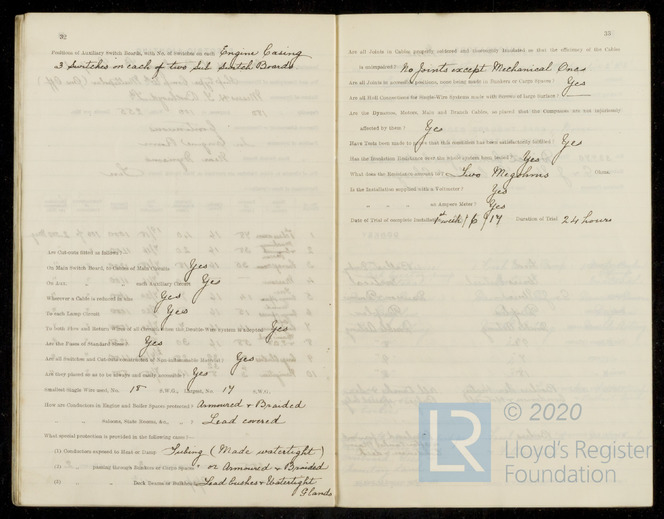 32
Positions of Auxiliary Switch Boards, with No. of Switches on each Engine Casing
3 Switches on each of two Sub Switch Boards
Are Cut-outs fitted as follows?
On Main Switch Board, to Cables of Main Circuits Yes
On Aux. each Auxiliary Circuit Yes
Wherever a Cable is reduced in size Yes
To each Lamp Circuit Yes
To both Flow and Return Wires of all Circuits when the Double-Wire System is adopted Yes
Are the Fuses of Standard Sizes? Yes
Are all Switches and Cut-outs constructed of Non-inflammable Material? Yes
Are they placed so as to be always and easily accessible? Yes
Smallest Single Wire used, No. 18 S.W.G., Largest, No. 17 S.W.G.
How are Conductors in Engine and Boiler Spaces protected? Armoured & Braided
" Saloons, State Rooms, &c., " ? Lead covered
What special protection is provided in the following cases?—
(1) Conductors exposed to Heat or Damp Tubing (Made watertight)
(2) " passing through Bunkers or Cargo Spaces " or Armoured & Braided
(3) " " Deck Beams or Bulkheads Lead bushes & Watertight
Glands
33
Are all Joints in Cables properly soldered and thoroughly insulated so that the efficiency of the Cables
is unimpaired? No Joints except Mechanical Ones
Are all Joints in accessible positions, none being made in Bunkers or Cargo Spaces? Yes
Are all Hull Connections for Single-Wire Systems made with Screws of large Surface? —
Are the Dynamos, Motors, Main and Branch Cables, so placed that the Compasses are not injuriously
affected by them? Yes
Have Tests been made to prove that this condition has been satisfactorily fulfilled? Yes
Has the Insulation Resistance over the whole system been tested? Yes
What does the Resistance amount to? Two Megohms Ohms.
Is the Installation supplied with a Voltmeter? Yes
" " " an Ampere Meter? Yes
Date of Trial of complete Installation 1st week/6/17 Duration of Trial 24 hours
© 2020
LR
Lloyd's Register
Foundation